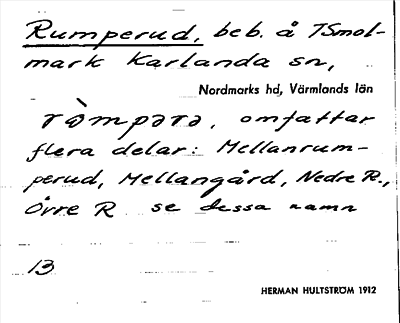 Rumperud, beb. å Smol-
mark Karlanda sn,
Nordmarks hd, Värmlands län
ràmpərə, omfattar
flera delar: Mellanrum-
perud, Mellangård, Nedre R.,
Övre R se dessa namn
13
HERMAN HULTSTRÖM 1912